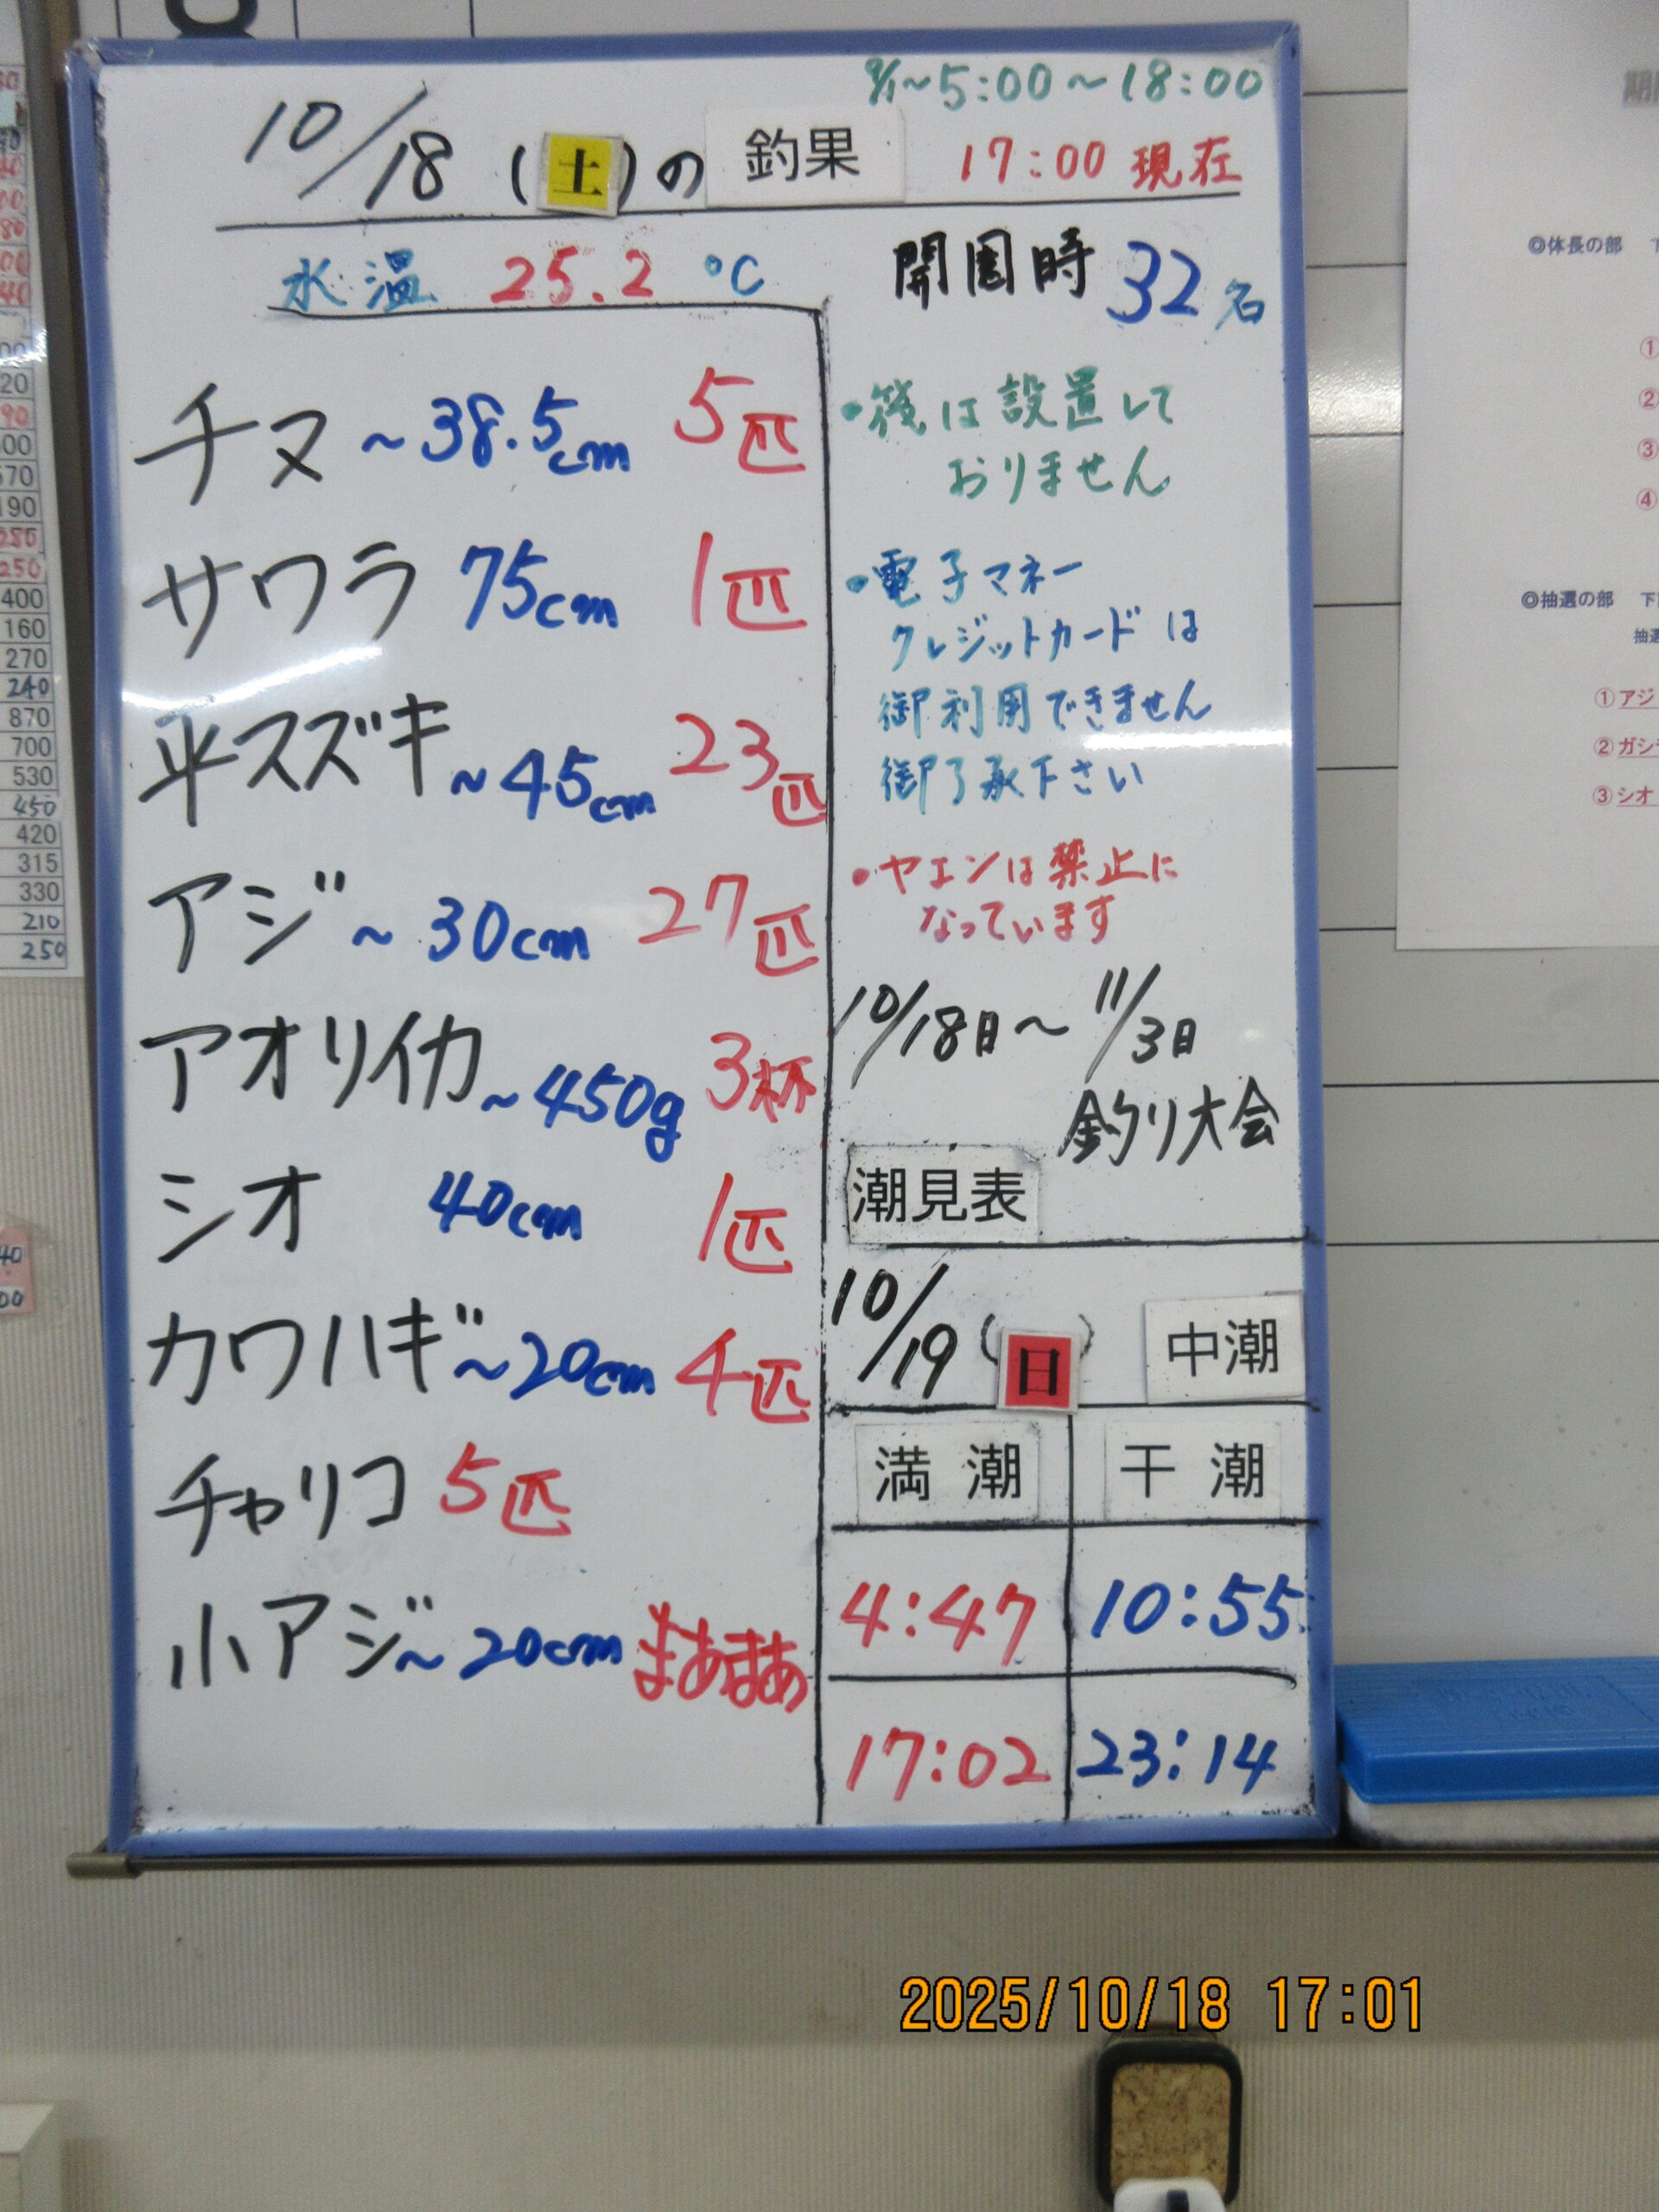 9/1~5:00~18:00
10/18(土)の 釣果 17:00 現在
水温 25.2 ℃
開園時 32名
チヌ ~38.5cm 5匹
サワラ 75cm 1匹
平スズキ~45cm 23匹
アジ~30cm 27匹
アオリイカ~450g 3杯
シオ 40cm 1匹
カワハギ~20cm 4匹
チャリコ 5匹
小アジ~20cm まあまあ
・筏は設置して
おりません
・電子マネー
クレジットカードは
御利用できません
御了承下さい
・ヤエンは禁止に
なっています
10/18日~11/3日
釣り大会
潮見表
10/19(日) 中潮
満潮 干潮
4:47 10:55
17:02 23:14
◎体長の部
①
②
③
④
◎抽選の部
①アジ
②ガシ
③シオ
400
160
270
240
870
700
530
450
420
315
330
210
250
2025/10/18 17:01